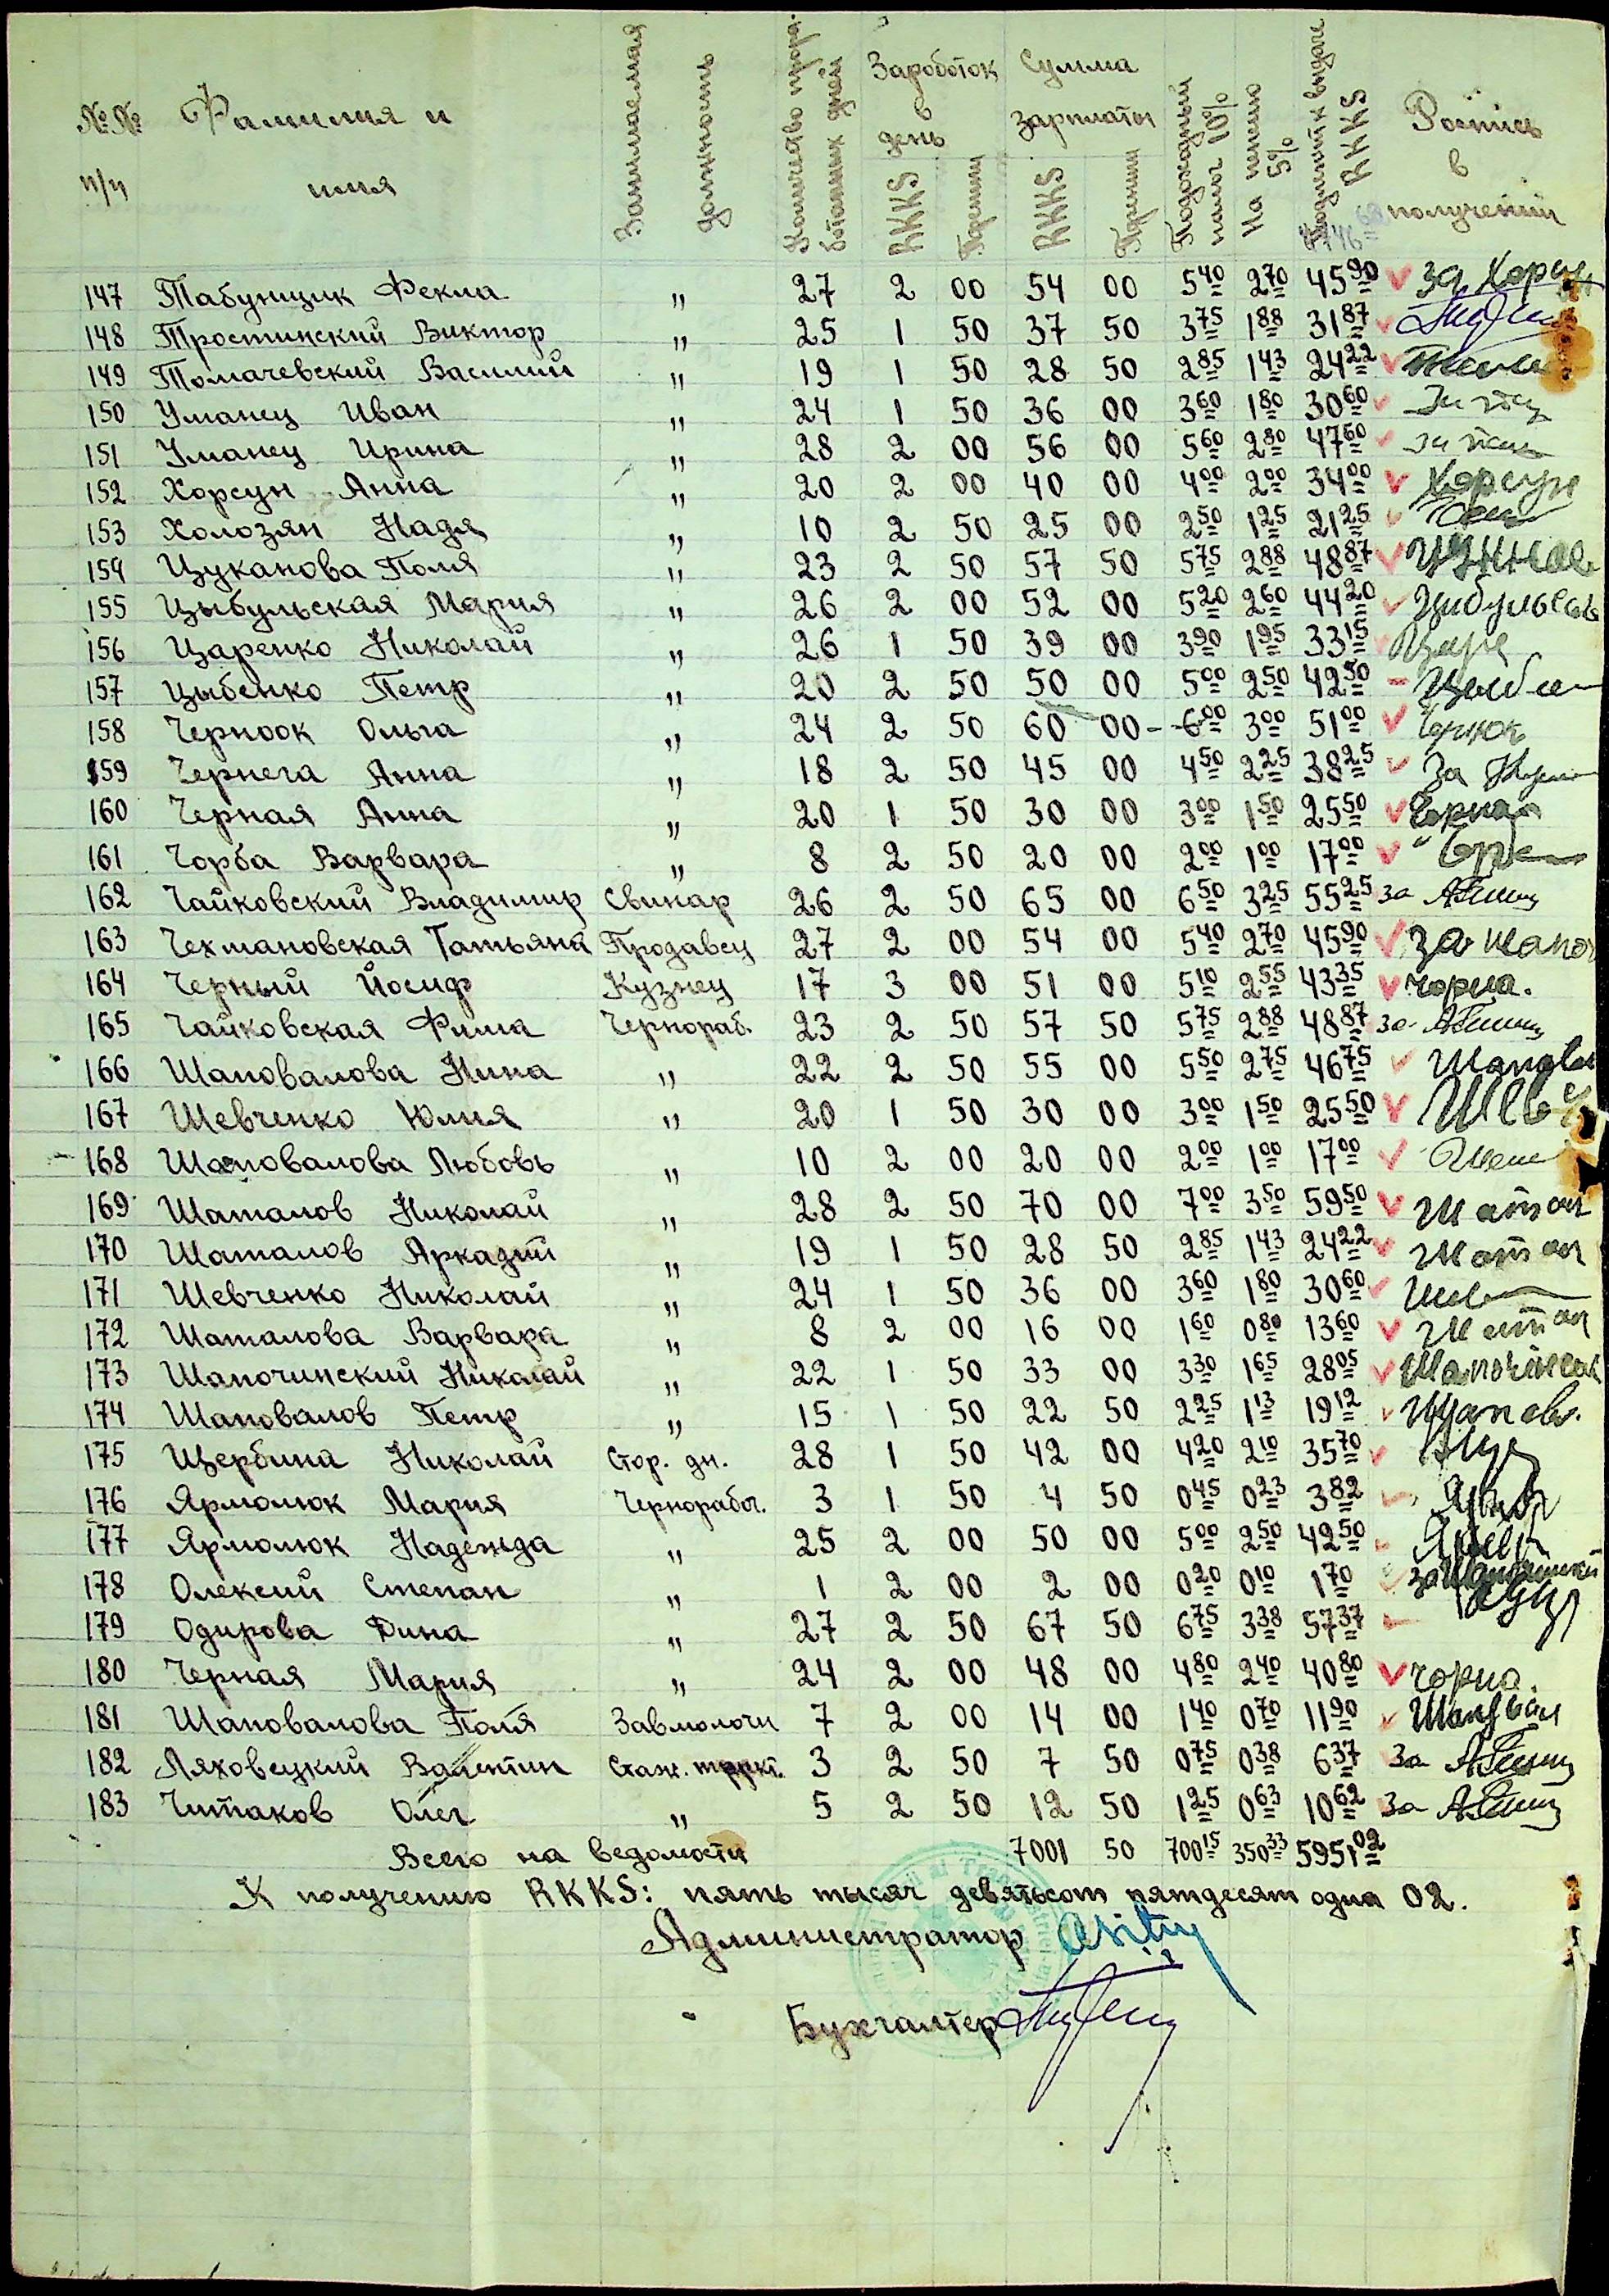 №№ п/п Фамилия и имя Занимаемая должность Количество прора-ботаных дней Заработок в день RKKS Пфенниг Сумма зарплаты RKKS Пфенниг Подоходный налог 10% На пенсию 5% Подлежит к выдаче RKKS Роспись в получении
147 Табунщик Фекла " 27 2 00 54 00 5 40 2 70 45 90 за Хорсун
148 Тростинский Виктор " 25 1 50 37 50 3 75 1 88 31 87
149 Томачевский Василий " 19 1 50 28 50 2 85 1 43 24 22
150 Уманец Иван " 24 1 50 36 00 3 60 1 80 30 60
151 Уманец Ирина " 28 2 00 56 00 5 60 2 80 47 60
152 Хорсун Анна " 20 2 00 40 00 4 00 2 00 34 00 Хорсун
153 Холозян Надя " 10 2 50 25 00 2 50 1 25 21 25
154 Цуканова Поля " 23 2 50 57 50 5 75 2 88 48 87
155 Цыбульская Мария " 26 2 00 52 00 5 20 2 60 44 20
156 Царенко Николай " 26 1 50 39 00 3 90 1 95 33 15 Царе
157 Цыбенко Петр " 20 2 50 50 00 5 00 2 50 42 50
158 Черноок Ольга " 24 2 50 60 00 - 6 00 3 00 51 00
159 Чернега Анна " 18 2 50 45 00 4 50 2 25 38 25 За
160 Черная Анна " 20 1 50 30 00 3 00 1 50 25 50 Чорная
161 Чорба Варвара " 8 2 50 20 00 2 00 1 00 17 00
162 Чайковский Владимир Свинар 26 2 50 65 00 6 50 3 25 55 25 за
163 Чехмановская Татьяна Продавец 27 2 00 54 00 5 40 2 70 45 90 За
164 Черный Йосиф Кузнец 17 3 00 51 00 5 10 2 55 43 35 Чорна.
165 Чайковская Фима Чернораб. 23 2 50 57 50 5 75 2 88 48 87 за
166 Шаповалова Нина " 22 2 50 55 00 5 50 2 75 46 75
167 Шевченко Юлия " 20 1 50 30 00 3 00 1 50 25 50
168 Шаповалова Любовь " 10 2 00 20 00 2 00 1 00 17 00
169 Шаталов Николай " 28 2 50 70 00 7 00 3 50 59 50
170 Шаталов Аркадий " 19 1 50 28 50 2 85 1 43 24 22
171 Шевченко Николай " 24 1 50 36 00 3 60 1 80 30 60
172 Шаталова Варвара " 8 2 00 16 00 1 60 0 80 13 60
173 Шапочинский Николай " 22 1 50 33 00 3 30 1 65 28 05
174 Шаповалов Петр " 15 1 50 22 50 2 25 1 13 19 12
175 Щербина Николай Стор. дн. 28 1 50 42 00 4 20 2 10 35 70
176 Ярмолюк Мария Чернорабоч. 3 1 50 4 50 0 45 0 23 3 82
177 Ярмолюк Надежда " 25 2 00 50 00 5 00 2 50 42 50
178 Олексий Степан " 1 2 00 2 00 0 20 0 10 1 70
179 Одирова Дина " 27 2 50 67 50 6 75 3 38 57 37
180 Черная Мария " 24 2 00 48 00 4 80 2 40 40 80 Чорна.
181 Шаповалова Поля Завмолочн 7 2 00 14 00 1 40 0 70 11 90
182 Ляховецкий Валентин Стаж. 3 2 50 7 50 0 75 0 38 6 37 За
183 Читаков Олег " 5 2 50 12 50 1 25 0 63 10 62 За
Всего на ведомости 7001 50 700 15 350 33 5951 02
К получению RKKS: пять тысяч девятьсот пятдесят одна 02.
Администратор
Бухгалтер